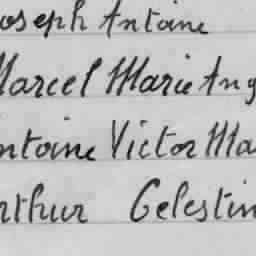 oseph Antoine
Marcel Marie Ang
ntoine Victor Ma
rthur Celestin